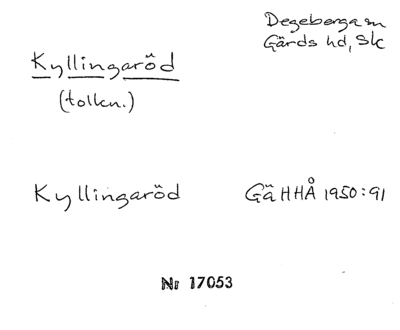 Degeberga sn
Gärds hd, Sk
Kyllingaröd
(tolkn.)
Kyllingaröd GäHHÅ 1950:91
Nr 17053